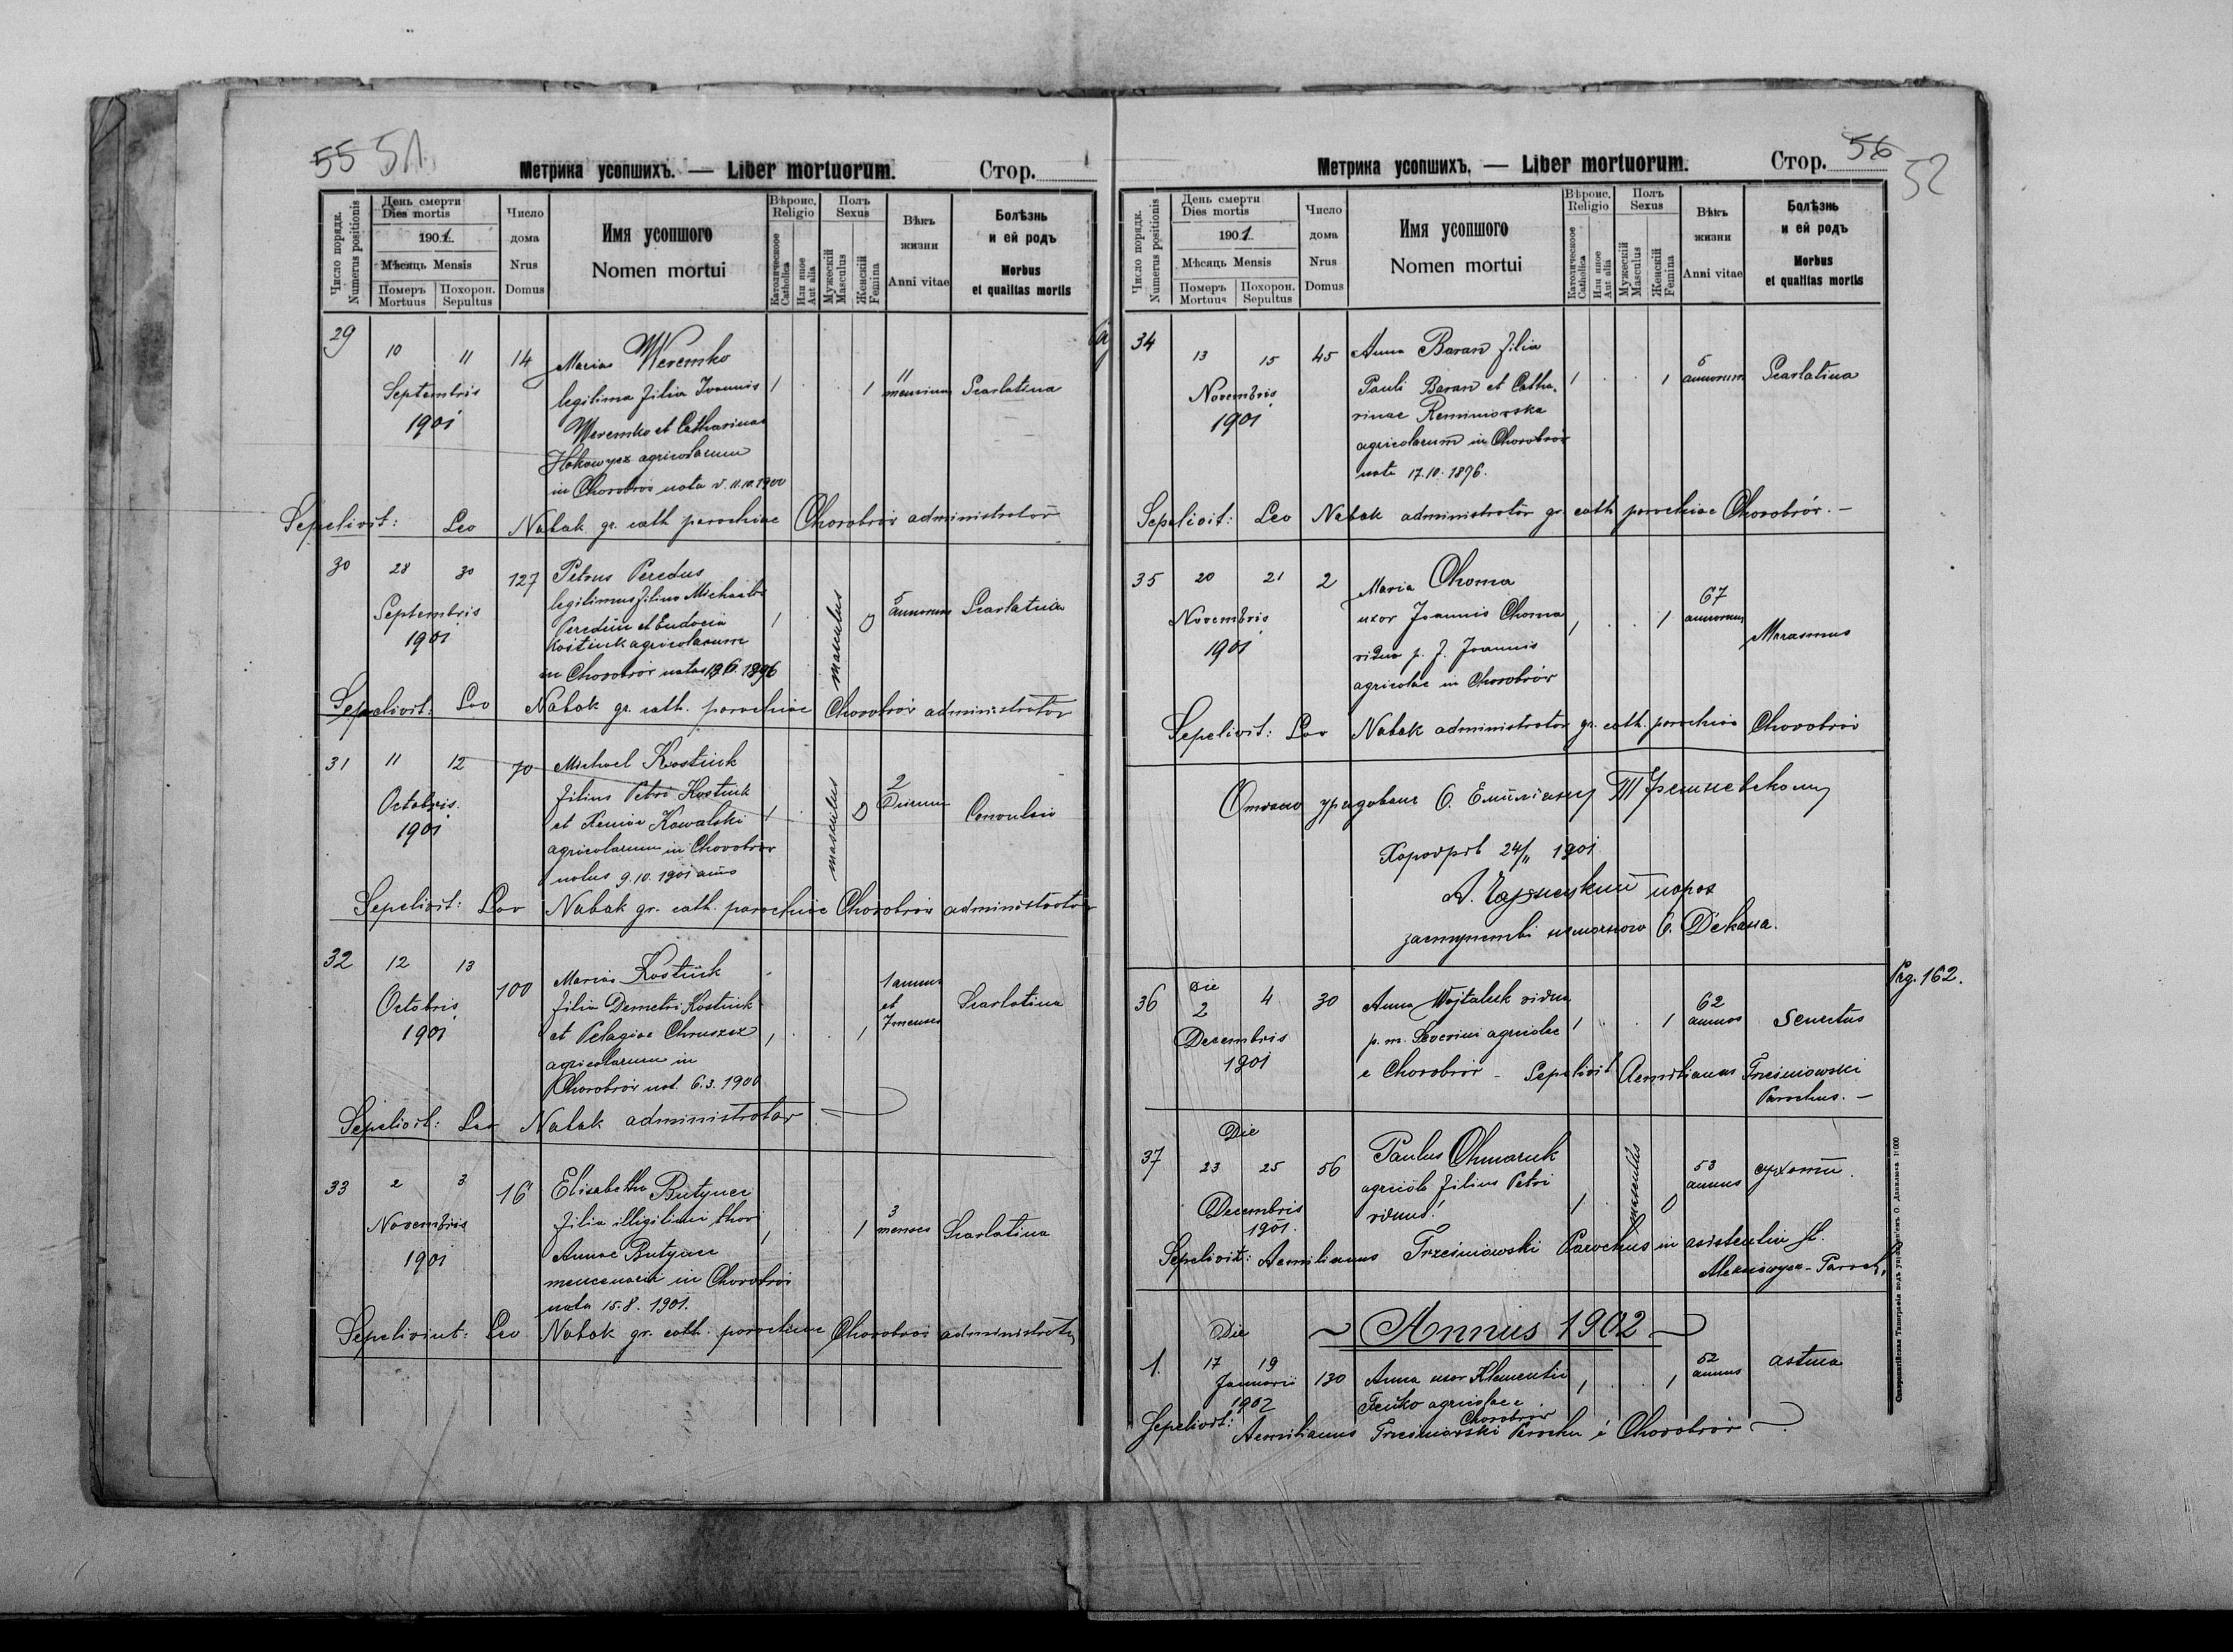 55 51.
Метрика усопшихъ. — Liber mortuorum. Стор.
Число порядк. Numerus positionis
День смерти Dies mortis
1901.
Мѣсяць Mensis
Померъ Mortuus
Похорон. Sepultus
Число дома Nrus Domus
Имя усопшого Nomen mortui
Вѣроис. Religio
Католическоое Catholica
Или иное Aut alia
Полъ Sexus
Мужескій Masculus
Женскій Femina
Вѣкъ жизни Anni vitae
Болѣзнь и ей родъ
Morbus et qualitas mortis
29 10 11 14 Maria Weremko
Septembris legitima filia Ioannis 1 1 11 mensium Scarlatina
1901 Weremko et Catharinae
agricolarum
in Chorobrów nata d. 11.10.1900
Sepelivit: Leo Nabak gr. cath parochiae Chorobrów administrator
30 28 30 127 Petrus Peredus
legitimus filius Michaelis
Septembris 1 masculus 5 annorum Scarlatina
1901 et Eudocia
Kostiuk agricolarum
in Chorobrów natus 1896
Sepelivit: Leo Nabak gr. cath. parochiae Chorobrów administrator
31 11 12 70 Michael Kostiuk
Octobris filius Petri Kostiuk 1 masculus 2 Dierum Convulsio
1901 et Xeniae Kowalski
agricolarum in Chorobrów
natus 9.10.1901 anno
Sepelivit: Leo Nabak gr. cath. parochiae Chorobrów administrator
32 12 13 100 Maria Kostiuk
Octobris filia Demetri Kostiuk 1 annus et 7 menses Scarlatina
1901 et Pelagiae Chruszcz 1 1
agricolarum in
Chorobrów nat. 6.3.1900
Sepelivit: Leo Nabak administrator
33 2 3 16 Elisabetha Butyniec
Novembris filia illigitimi thori 1 1 3 menses Scarlatina
1901 Annae Butyniec
in Chorobrów
nata 15.8.1901.
Sepelivit: Leo Nabak gr. cath. parochiae Chorobrów administrator
56 52
Метрика усопшихъ. — Liber mortuorum. Стор.
Число порядк. Numerus positionis
День смерти Dies mortis
1901.
Мѣсяць Mensis
Померъ Mortuus
Похорон. Sepultus
Число дома Nrus Domus
Имя усопшого Nomen mortui
Вѣроис. Religio
Католическоое Catholica
Или иное Aut alia
Полъ Sexus
Мужескій Masculus
Женскій Femina
Вѣкъ жизни Anni vitae
Болѣзнь и ей родъ
Morbus et qualitas mortis
34 13 15 45 Anna Baran filia
Novembris Pauli Baran et Catha- 1 1 5 annorum Scarlatina
1901 rinae
agricolarum in Chorobrów
nata 17.10.1896.
Sepelivit: Leo Nabak administrator gr. cath parochiae Chorobrów. —
35 20 21 2 Maria Choma
Novembris uxor Joannis Choma 1 1 67 annorum Marasmus
1901 vidua p. f. Joannis
agricolae in Chorobrów
Sepelivit: Leo Nabak administrator gr. cath. parochiae Chorobrów
О. Емілїану Трешневскому
24/11 1901
парох
О. Декана.
Pag. 162.
36 die 2 4 30 Anna Wojtaluk vidua 1 1 62 annos Senectus
Decembris p. m. Severini agricolae
1901 e Chorobrów - Sepelivit Aemilianus Trześniowski
Parochus. —
Die
37 23 25 56 Paulus Chmaruk 1 masculus 53 annus сухоти.
Decembris agricola filius Petri
1901. viduus!
Sepelivit: Aemilianus Trześniowski Parochus in asistentia
Paroch.
Annus 1902
Die
1. 17 19 130 Anna uxor Klementii 1 1 52 annus astma
Januarii agricolae e
1902 Chorobrów
Sepelivit: Aemilianus Trześniowski Parochu é Chorobrów